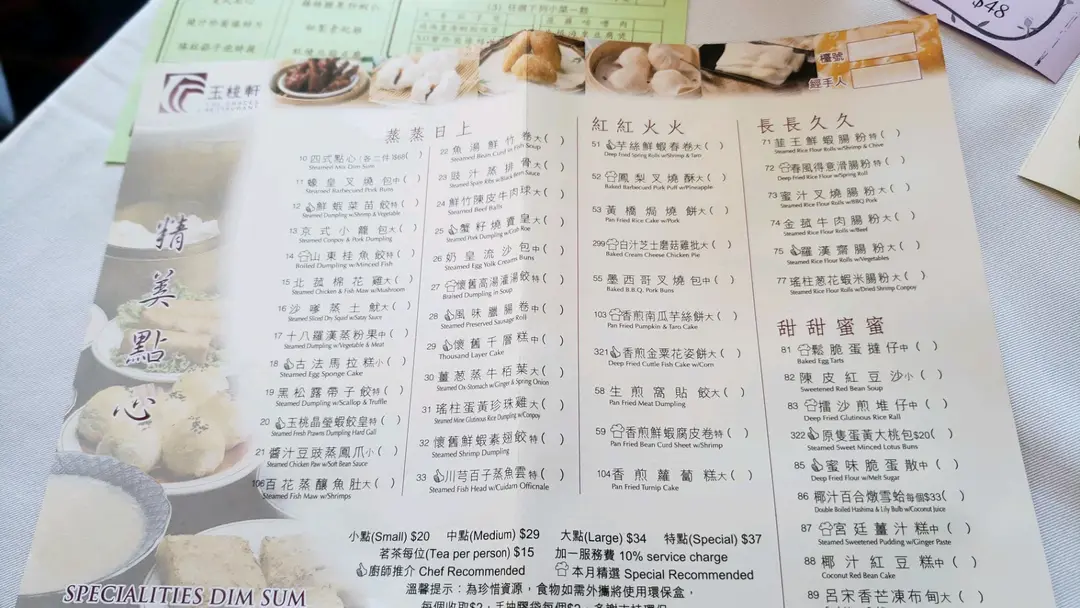 $48
玉桂軒
檯號
經手人
精美點心
SPECIALITIES DIM SUM
蒸蒸日上
10 四式點心(各二件)$68( )
Steamed Mix Dim Sum
11 蠔皇叉燒包中( )
Steamed Barbecued Pork Buns
12 鮮蝦菜苗餃特( )
Steamed Dumpling w/Shrimp & Vegetable
13 京式小籠包大( )
Steamed Conpoy & Pork Dumpling
14 山東桂魚餃特( )
Boiled Dumpling w/Minced Fish
15 北菇棉花雞大( )
Steamed Chicken & Fish Maw w/Mushroom
16 沙嗲蒸土魷大( )
Steamed Sliced Dry Squid w/Satay Sauce
17 十八羅漢蒸粉果中( )
Steamed Dumpling w/Vegetable & Meat
18 古法馬拉糕小( )
Steamed Egg Sponge Cake
19 黑松露帶子餃特( )
Steamed Dumpling w/Scallop & Truffle
20 玉桃晶瑩蝦餃皇特( )
Steamed Fresh Prawns Dumpling Hard Gall
21 醬汁豆豉蒸鳳爪小( )
Steamed Chicken Paw w/Soft Bean Sauce
106 百花蒸釀魚肚大( )
Steamed Fish Maw w/Shrimps
22 魚湯鮮竹卷大( )
Steamed Bean Curd in Fish Soup
23 豉汁蒸排骨大( )
Steamed Spare Ribs w/Black Bean Sauce
24 鮮竹陳皮牛肉球大( )
Steamed Beef Balls
25 蟹籽燒賣皇大( )
Steamed Pork Dumpling w/Crab Roe
26 奶皇流沙包中( )
Steamed Egg Yolk Creams Buns
27 懷舊高湯灌湯餃特( )
Braised Dumpling in Soup
28 風味臘腸卷中( )
Steamed Preserved Sausage Roll
29 懷舊千層糕中( )
Thousand Layer Cake
30 薑葱蒸牛栢葉大( )
Steamed Ox-Stomach w/Ginger & Spring Onion
31 瑤柱蛋黃珍珠雞大( )
Steamed Mine Glutinous Rice Dumpling w/Conpoy
32 懷舊鮮蝦素翅餃特( )
Steamed Shrimp Dumpling
33 川芎百子蒸魚雲特( )
Steamed Fish Head w/Cuidam Officnale
紅紅火火
51 芋絲鮮蝦春卷大( )
Deep Fried Spring Rolls w/Shrimp & Taro
52 鳳梨叉燒酥大( )
Baked Barbecued Pork Puff w/Pineapple
53 黃橋焗燒餅大( )
Pan Fried Rice Cake w/Pork
299 白汁芝士磨菇雞批大( )
Baked Cream Cheese Chicken Pie
55 墨西哥叉燒包中( )
Baked B.B.Q. Pork Buns
103 香煎南瓜芋絲餅大( )
Pan Fried Pumpkin & Taro Cake
321 香煎金粟花姿餅大( )
Deep Fried Cuttle Fish Cake w/Corn
58 生煎窩貼餃大( )
Pan Fried Meat Dumpling
59 香煎鮮蝦腐皮卷特( )
Pan Fried Bean Curd Sheet w/Shrimp
104 香煎蘿蔔糕大( )
Pan Fried Turnip Cake
長長久久
71 韮王鮮蝦腸粉特( )
Steamed Rice Flour Rolls w/Shrimp & Chive
72 春風得意滑腸粉特( )
Deep Fried Rice Flour w/Spring Roll
73 蜜汁叉燒腸粉大( )
Steamed Rice Flour Rolls w/BBQ Pork
74 金菰牛肉腸粉大( )
Steamed Rice Flour Rolls w/Beef
75 羅漢齋腸粉大( )
Steamed Rice Flour Rolls w/Vegetables
77 瑤柱葱花蝦米腸粉大( )
Steamed Rice Flour Rolls w/Dried Shrimp Conpoy
甜甜蜜蜜
81 鬆脆蛋撻仔中( )
Baked Egg Tarts
82 陳皮紅豆沙小( )
Sweetened Red Bean Soup
83 擂沙煎堆仔中( )
Deep Fried Glutinous Rice Rall
322 原隻蛋黃大桃包$20( )
Steamed Sweet Minced Lotus Buns
85 蜜味脆蛋散中( )
Deep Fried Flour w/Melt Sugar
86 椰汁百合燉雪蛤每個$33( )
Double Boiled Hashima & Lily Bulb w/Coconut Juice
87 宮廷薑汁糕中( )
Steamed Sweetened Pudding w/Ginger Paste
88 椰汁紅豆糕中( )
Coconut Red Bean Cake
89 呂宋香芒凍布甸大( )
小點(Small) $20 中點(Medium) $29 大點(Large) $34 特點(Special) $37
茗茶每位(Tea per person) $15 加一服務費 10% service charge
廚師推介 Chef Recommended 本月精選 Special Recommended
溫馨提示：為珍惜資源，食物如需外攜將使用環保盒，
每個收取$2，手抽膠袋每個$2，多謝支持環保